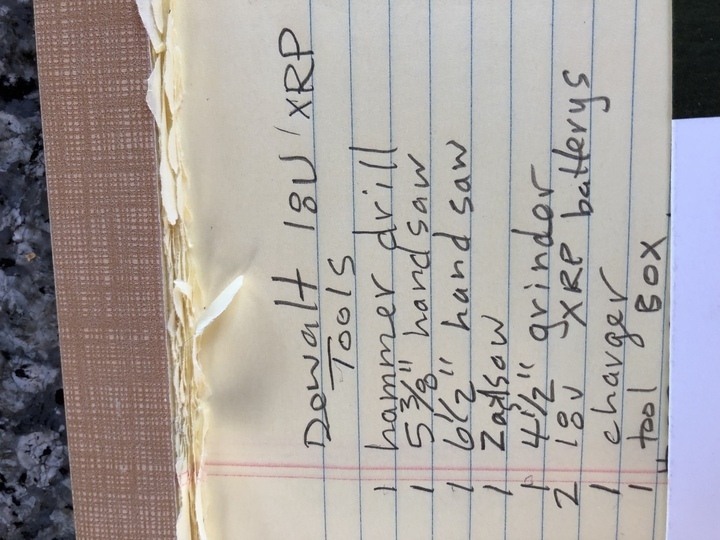 Dewalt 18V XRP
Tools
1 hammer drill
1 5 3/8" handsaw
1 6 1/2" hand saw
1 Zadsaw
1 4 1/2" grinder
2 18v XRP batterys
1 charger
1 tool BOX